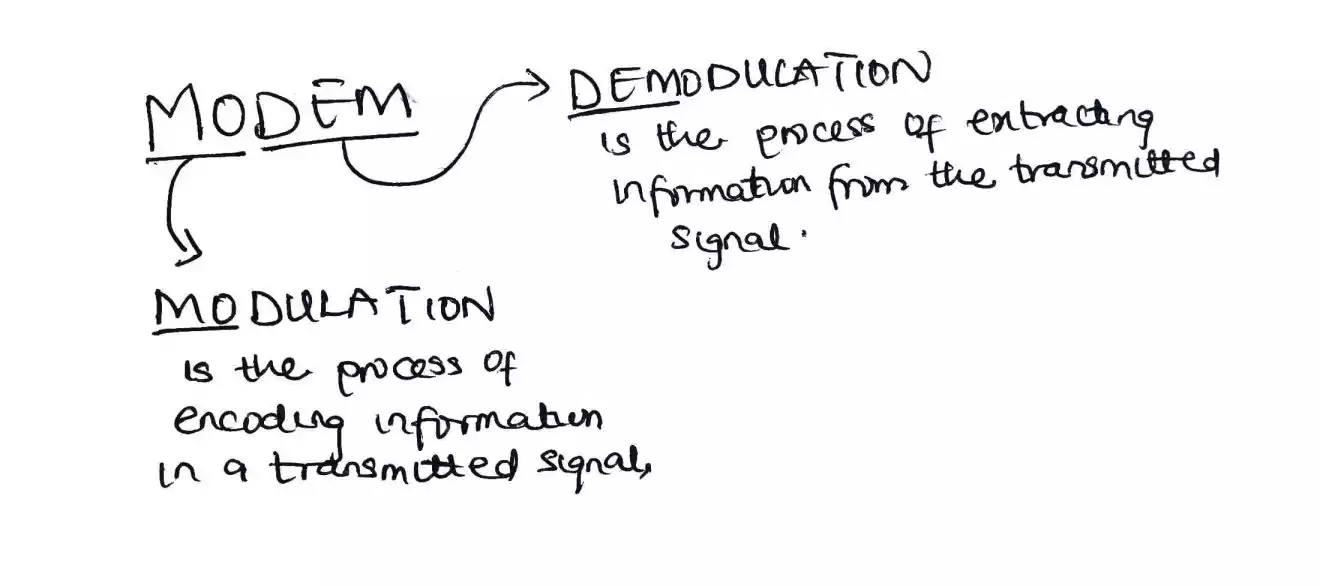 MODEM
DEMODUCATION
is the process of extracting
information from the transmitted
signal.
MODULATION
is the process of
encoding information
in a transmitted signal,